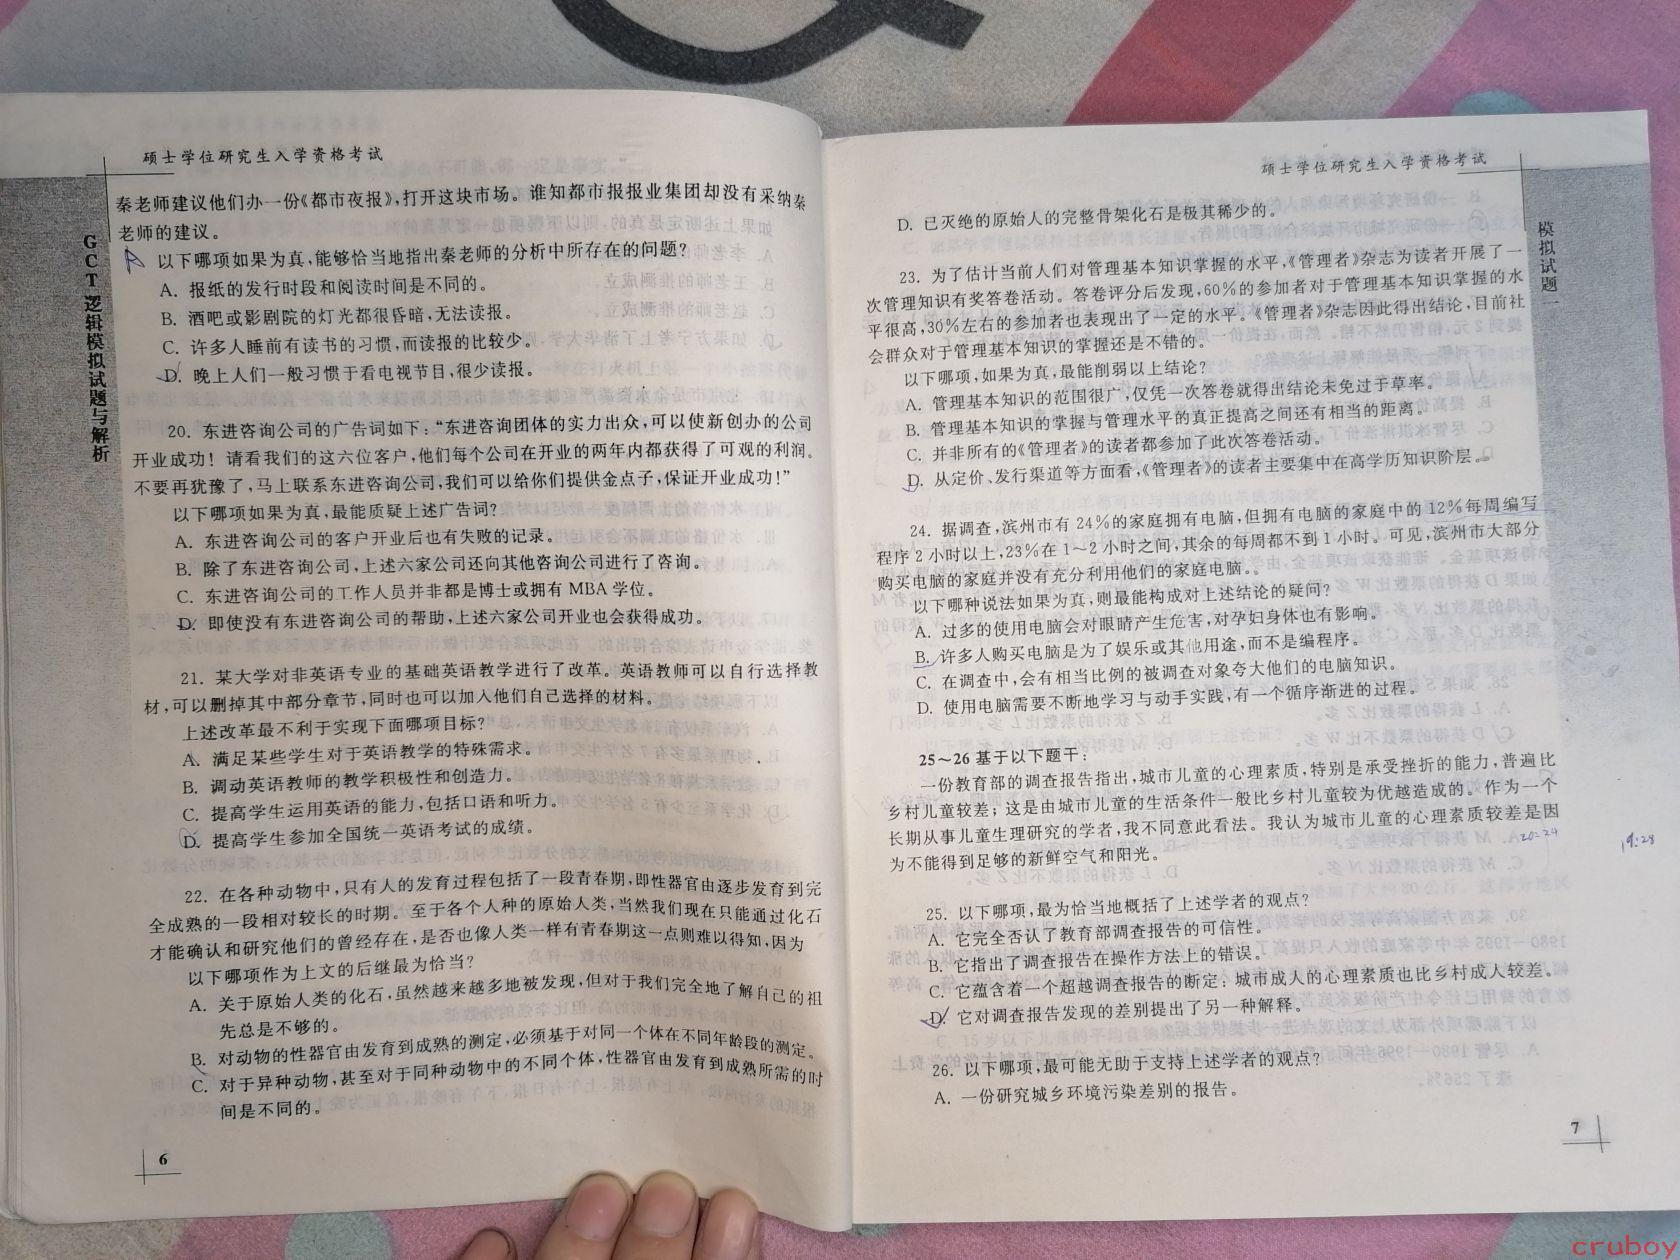 硕士学位研究生入学资格考试
GCT逻辑模拟试题与解析
秦老师建议他们办一份《都市夜报》,打开这块市场。谁知都市报报业集团却没有采纳秦
老师的建议。
以下哪项如果为真,能够恰当地指出秦老师的分析中所存在的问题?
A. 报纸的发行时段和阅读时间是不同的。
B. 酒吧或影剧院的灯光都很昏暗,无法读报。
C. 许多人睡前有读书的习惯,而读报的比较少。
D. 晚上人们一般习惯于看电视节目,很少读报。
20. 东进咨询公司的广告词如下:“东进咨询团体的实力出众,可以使新创办的公司
开业成功!请看我们的这六位客户,他们每个公司在开业的两年内都获得了可观的利润。
不要再犹豫了,马上联系东进咨询公司,我们可以给你们提供金点子,保证开业成功!”
以下哪项如果为真,最能质疑上述广告词?
A. 东进咨询公司的客户开业后也有失败的记录。
B. 除了东进咨询公司,上述六家公司还向其他咨询公司进行了咨询。
C. 东进咨询公司的工作人员并非都是博士或拥有 MBA 学位。
D. 即使没有东进咨询公司的帮助,上述六家公司开业也会获得成功。
21. 某大学对非英语专业的基础英语教学进行了改革。英语教师可以自行选择教
材,可以删掉其中部分章节,同时也可以加入他们自己选择的材料。
上述改革最不利于实现下面哪项目标?
A. 满足某些学生对于英语教学的特殊需求。
B. 调动英语教师的教学积极性和创造力。
C. 提高学生运用英语的能力,包括口语和听力。
D. 提高学生参加全国统一英语考试的成绩。
22. 在各种动物中,只有人的发育过程包括了一段青春期,即性器官由逐步发育到完
全成熟的一段相对较长的时期。至于各个人种的原始人类,当然我们现在只能通过化石
才能确认和研究他们的曾经存在,是否也像人类一样有青春期这一点则难以得知,因为
以下哪项作为上文的后继最为恰当?
A. 关于原始人类的化石,虽然越来越多地被发现,但对于我们完全地了解自己的祖
先总是不够的。
B. 对动物的性器官由发育到成熟的测定,必须基于对同一个体在不同年龄段的测定。
C. 对于异种动物,甚至对于同种动物中的不同个体,性器官由发育到成熟所需的时
间是不同的。
6
硕士学位研究生入学资格考试
模拟试题一
D. 已灭绝的原始人的完整骨架化石是极其稀少的。
23. 为了估计当前人们对管理基本知识掌握的水平,《管理者》杂志为读者开展了一
次管理知识有奖答卷活动。答卷评分后发现,60%的参加者对于管理基本知识掌握的水
平很高,30%左右的参加者也表现出了一定的水平。《管理者》杂志因此得出结论,目前社
会群众对于管理基本知识的掌握还是不错的。
以下哪项,如果为真,最能削弱以上结论?
A. 管理基本知识的范围很广,仅凭一次答卷就得出结论未免过于草率。
B. 管理基本知识的掌握与管理水平的真正提高之间还有相当的距离。
C. 并非所有的《管理者》的读者都参加了此次答卷活动。
D. 从定价、发行渠道等方面看,《管理者》的读者主要集中在高学历知识阶层。
24. 据调查,滨州市有 24%的家庭拥有电脑,但拥有电脑的家庭中的 12%每周编写
程序 2 小时以上,23%在 1～2 小时之间,其余的每周都不到 1 小时。可见,滨州市大部分
购买电脑的家庭并没有充分利用他们的家庭电脑。
以下哪种说法如果为真,则最能构成对上述结论的疑问?
A. 过多的使用电脑会对眼睛产生危害,对孕妇身体也有影响。
B. 许多人购买电脑是为了娱乐或其他用途,而不是编程序。
C. 在调查中,会有相当比例的被调查对象夸大他们的电脑知识。
D. 使用电脑需要不断地学习与动手实践,有一个循序渐进的过程。
25～26 基于以下题干:
一份教育部的调查报告指出,城市儿童的心理素质,特别是承受挫折的能力,普遍比
乡村儿童较差;这是由城市儿童的生活条件一般比乡村儿童较为优越造成的。作为一个
长期从事儿童生理研究的学者,我不同意此看法。我认为城市儿童的心理素质较差是因
为不能得到足够的新鲜空气和阳光。
20=24
19:28
25. 以下哪项,最为恰当地概括了上述学者的观点?
A. 它完全否认了教育部调查报告的可信性。
B. 它指出了调查报告在操作方法上的错误。
C. 它蕴含着一个超越调查报告的断定:城市成人的心理素质也比乡村成人较差。
D. 它对调查报告发现的差别提出了另一种解释。
26. 以下哪项,最可能无助于支持上述学者的观点?
A. 一份研究城乡环境污染差别的报告。
7
cruboy